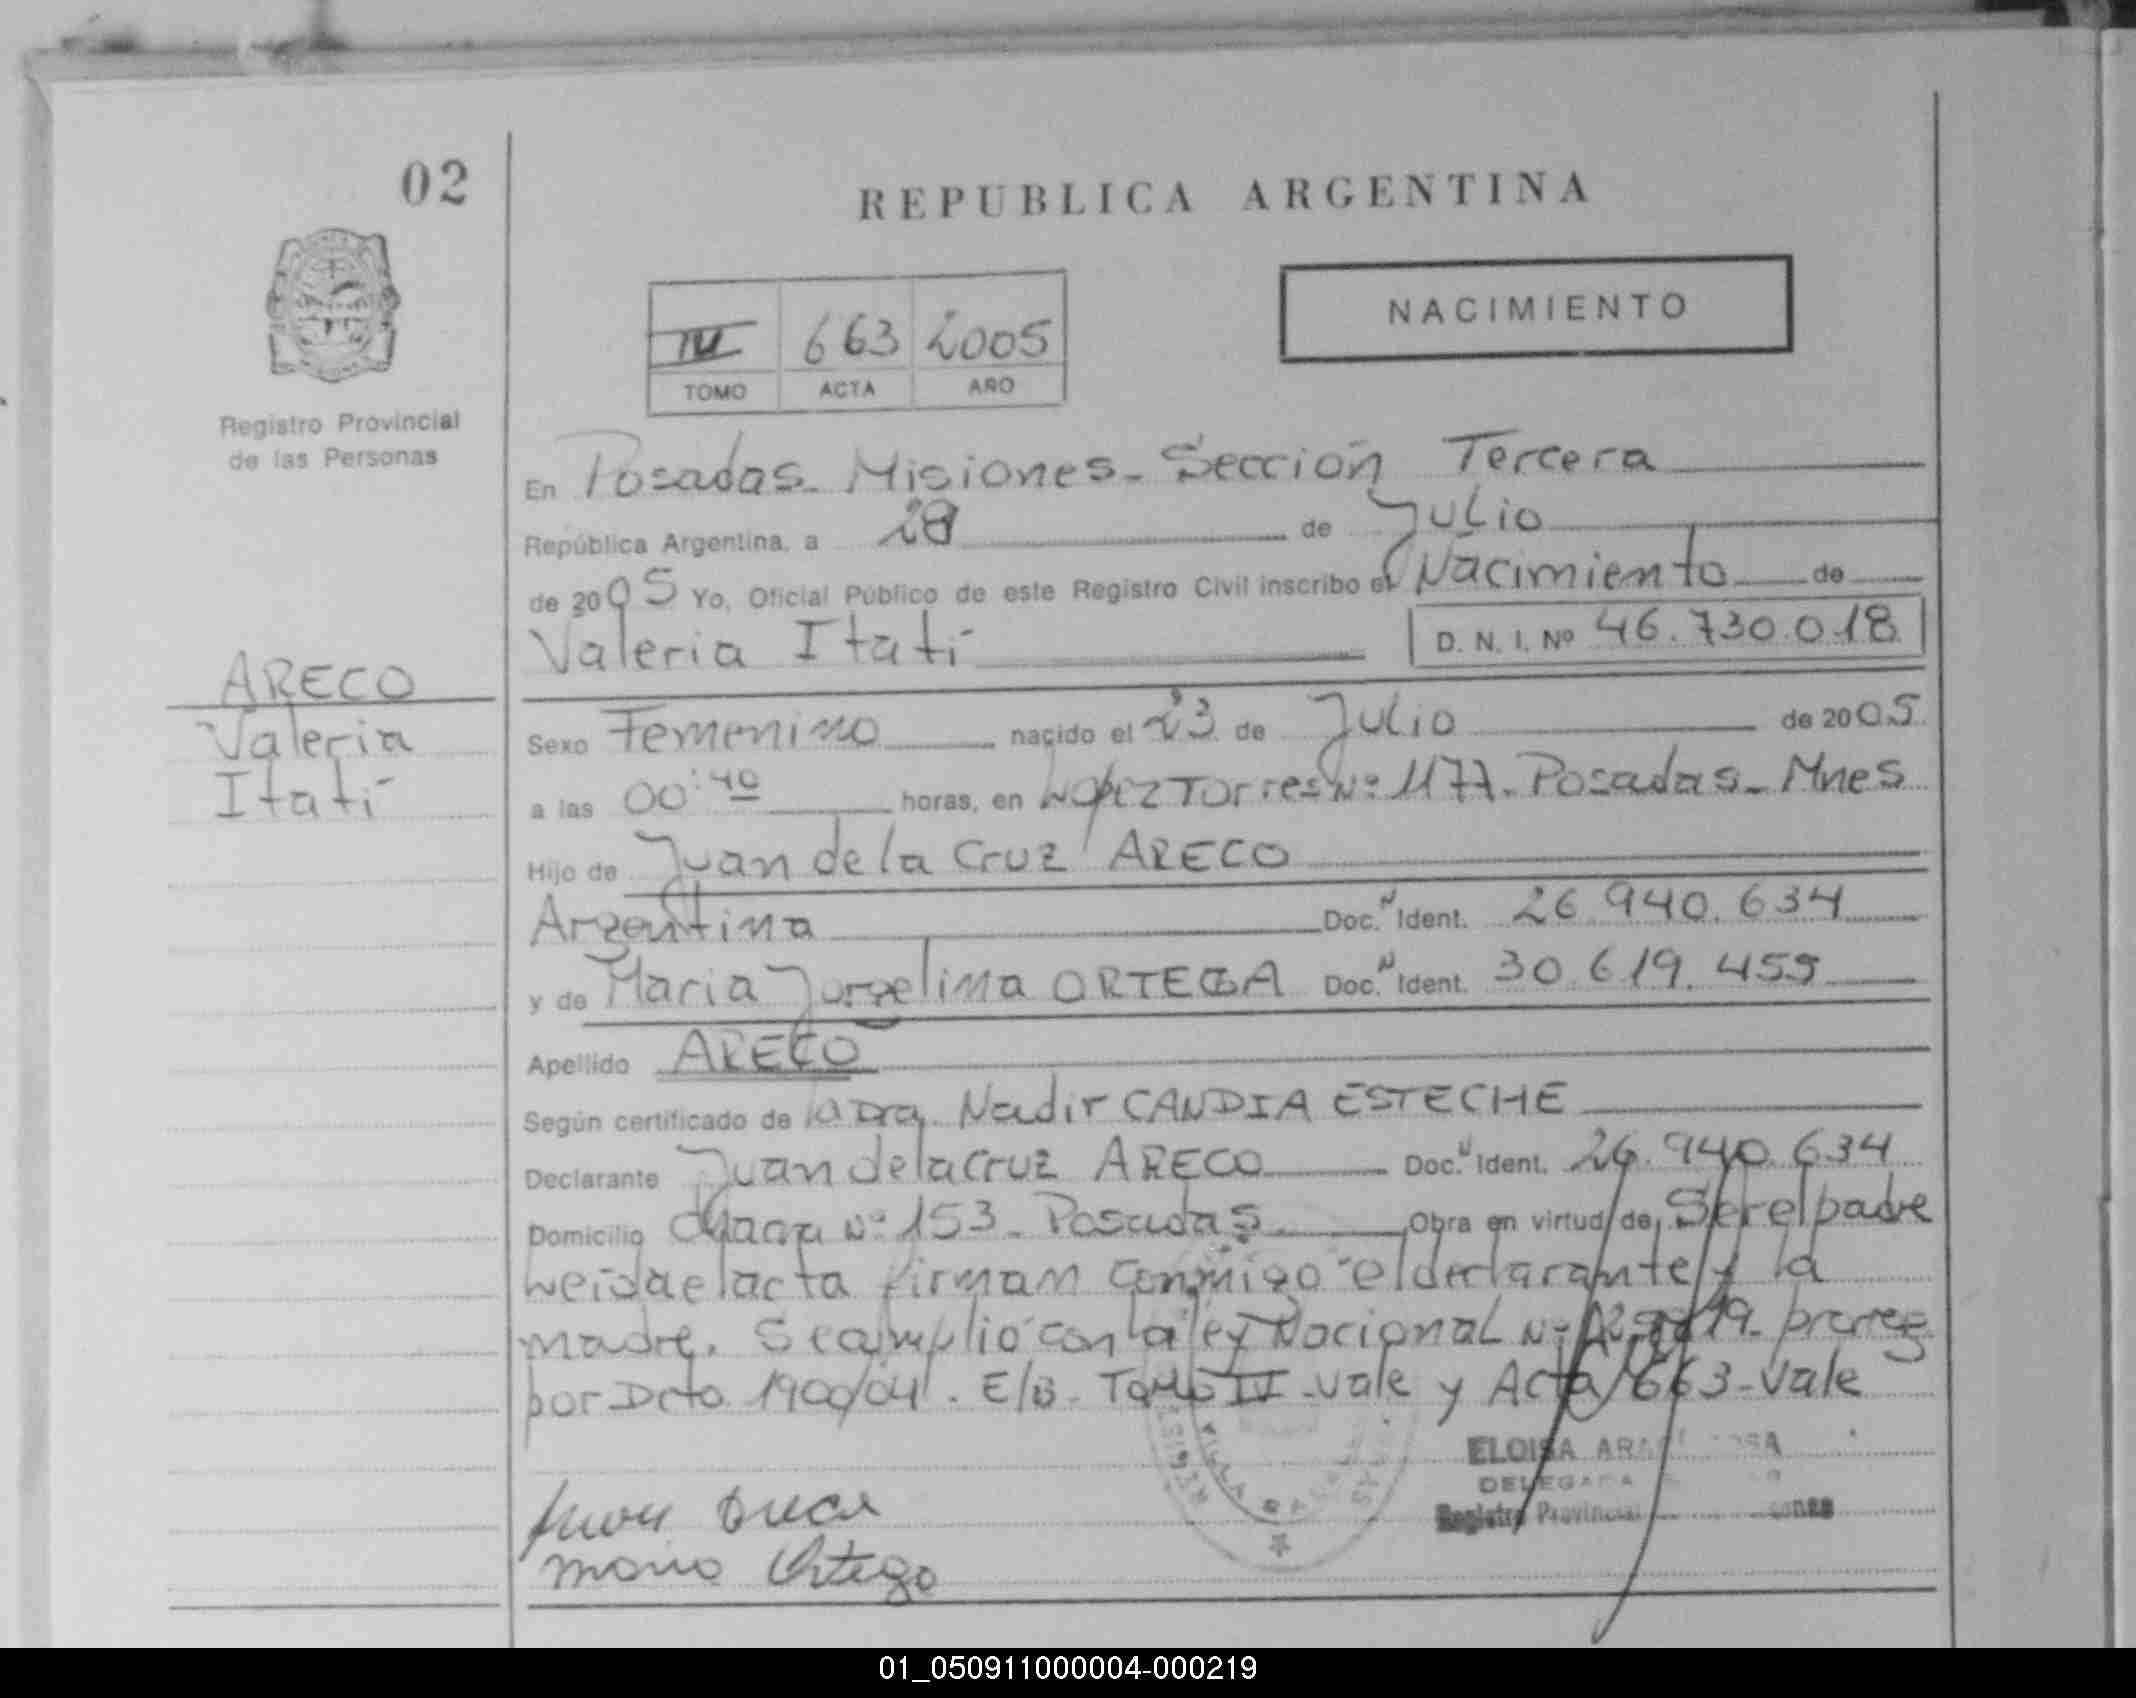 02
REPUBLICA ARGENTINA
NACIMIENTO
IV 663 2005
TOMO ACTA AÑO
Registro Provincial
de las Personas
En Posadas - Misiones - Sección Tercera
República Argentina, a 28 de Julio
de 2005 Yo, Oficial Público de este Registro Civil inscribo el Nacimiento de
Valeria Itatí D. N. I. Nº 46.730.018
ARECO
Valeria
Itatí
Sexo Femenino nacido el 23 de Julio de 2005
a las 00:40 horas, en Lopez Torres Nº 1177 - Posadas - Mnes
Hijo de Juan de la Cruz ARECO
Argentina Doc. N Ident. 26.940.634
y de Maria Jorgelina ORTEGA Doc. N Ident. 30.619.459
Apellido ARECO
Según certificado de la Dra. Nadir CANDIA ESTECHE
Declarante Juan de la Cruz ARECO Doc. N Ident. 26.940.634
Domicilio Nº 153 - Posadas Obra en virtud de Ser el padre
Leida el acta firman conmigo el declarante y la
madre. Se amplio con la ley Nacional Nº prorrog
por Dcto 1900/04. E/B - Tomo IV - vale y Acta 663 - vale
ELOISA
DELEGADA
Registro Provincial
Maria Ortega
01_050911000004-000219